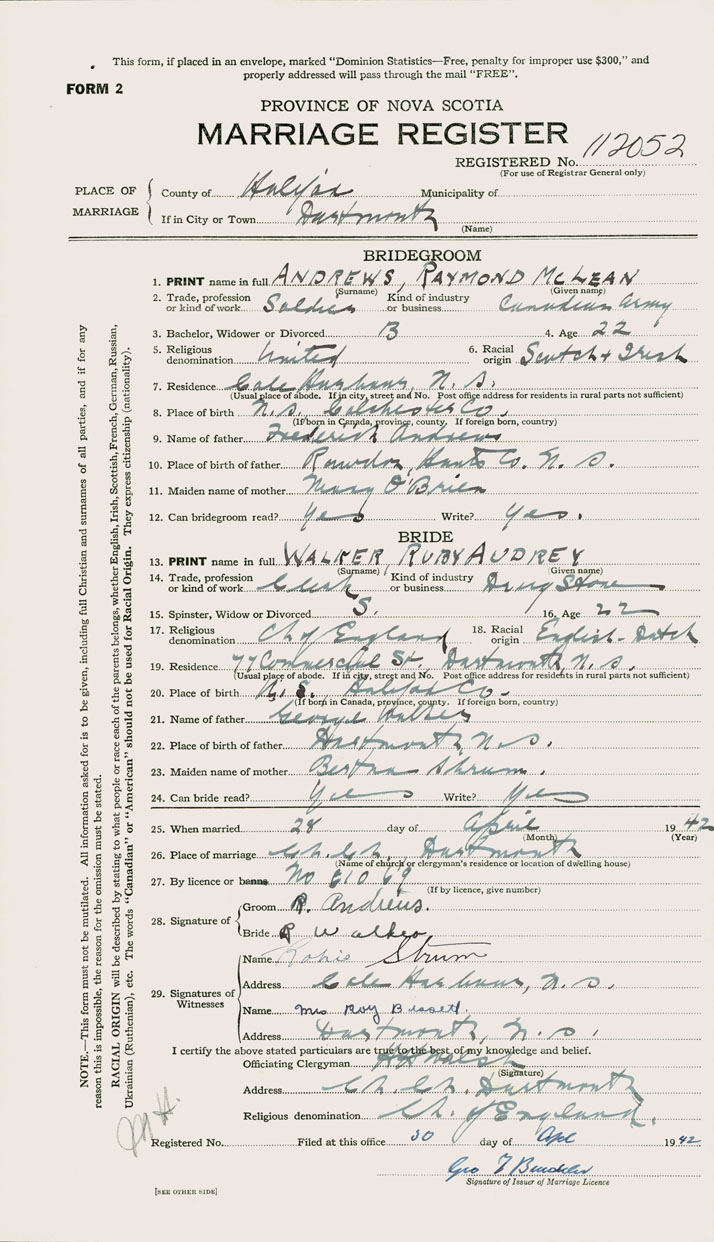 This form, if placed in an envelope, marked "Dominion Statistics—Free, penalty for improper use $300," and
properly addressed will pass through the mail "FREE".
FORM 2
PROVINCE OF NOVA SCOTIA
MARRIAGE REGISTER
REGISTERED No. 112052
(For use of Registrar General only)
PLACE OF MARRIAGE
County of Halifax Municipality of
If in City or Town Dartmouth
(Name)
BRIDEGROOM
1. PRINT name in full ANDREWS, RAYMOND MCLEAN
(Surname) (Given name)
2. Trade, profession or kind of work Soldier Kind of industry or business Canadian Army
3. Bachelor, Widower or Divorced B 4. Age 22
5. Religious denomination United 6. Racial origin Scotch & Irish
7. Residence Cole Harbour, N. S.
(Usual place of abode. If in city, street and No. Post office address for residents in rural parts not sufficient)
8. Place of birth N.S. Colchester Co.
(If born in Canada, province, county. If foreign born, country)
9. Name of father Frederick Andrews
10. Place of birth of father Rawdon, Hants Co. N. S.
11. Maiden name of mother Mary O'Brien
12. Can bridegroom read? Yes Write? Yes.
BRIDE
13. PRINT name in full WALKER RUBY AUDREY
(Surname) (Given name)
14. Trade, profession or kind of work Clerk Kind of industry or business Drug Store
15. Spinster, Widow or Divorced S. 16. Age 22
17. Religious denomination Ch of England 18. Racial origin English-Dutch
19. Residence 77 Commercial St., Dartmouth, N. S.
(Usual place of abode. If in city, street and No. Post office address for residents in rural parts not sufficient)
20. Place of birth N. S. Halifax Co.
(If born in Canada, province, county. If foreign born, country)
21. Name of father George Walker
22. Place of birth of father Dartmouth, N. S.
23. Maiden name of mother Bertha Shrum.
24. Can bride read? Yes Write? Yes
25. When married 28 day of April 1942
(Month) (Year)
26. Place of marriage Ch. Ch. Dartmouth
(Name of church or clergyman's residence or location of dwelling house)
27. By licence or banns No E1069
(If by licence, give number)
28. Signature of
Groom R. Andrews.
Bride R Walker
29. Signatures of Witnesses
Name Strum
Address Cole Harbour, N. S.
Name Mrs Roy Bissett.
Address Dartmouth, N. S.
I certify the above stated particulars are true to the best of my knowledge and belief.
Officiating Clergyman
(Signature)
Address Ch. Ch. Dartmouth
Religious denomination Ch. of England.
Registered No. Filed at this office 30 day of Apl 1942
Signature of Issuer of Marriage Licence
[SEE OTHER SIDE]
NOTE.—This form must not be mutilated. All information asked for is to be given, including full Christian and surnames of all parties, and if for any
reason this is impossible, the reason for the omission must be stated.
RACIAL ORIGIN will be described by stating to what people or race each of the parents belongs, whether English, Irish, Scottish, French, German, Russian,
Ukrainian (Ruthenian), etc. The words "Canadian" or "American" should not be used for Racial Origin. They express citizenship (nationality).